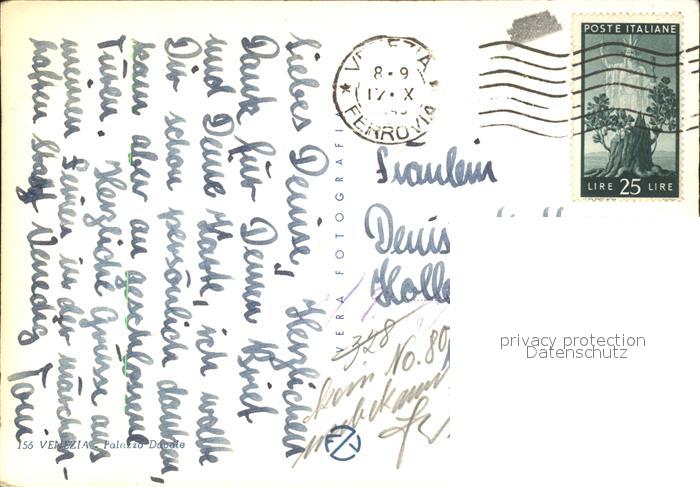 Liebes Denise, Herzlichen
Dank für Deinen Brief
und Deine Karte, ich wollte
Dir schon persönlich danken,
kam aber an geschlossene
Türen. Herzliche Grüsse aus
meinen Ferien in der märchen-
haften Stadt Venedig
VENEZIA
8-9
17 X
FERROVIA
POSTE ITALIANE
LIRE 25 LIRE
Fräulein
Denis
Holle
328
Kein No. 80
unbekannt
VERA FOTOGRAFIA
156 VENEZIA - Palazzo Ducale
privacy protection
Datenschutz